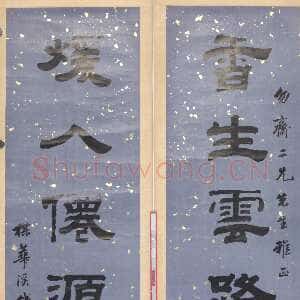 勿齋二兄先生雅正
香生雲路
煖入僊源
梅華溪
Shufawang.CN